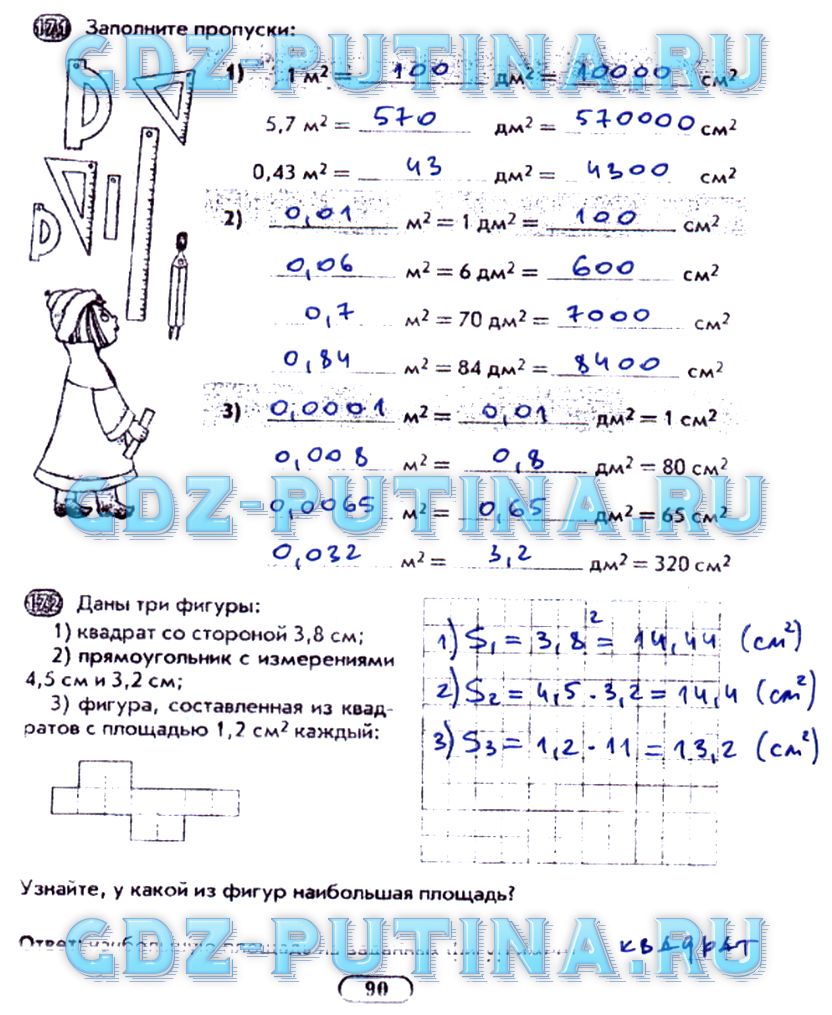 171 Заполните пропуски:
GDZ-PUTINA.RU
1) 1 м² = 100 дм² = 10000 см²
5,7 м² = 570 дм² = 570000 см²
0,43 м² = 43 дм² = 4300 см²
2) 0,01 м² = 1 дм² = 100 см²
0,06 м² = 6 дм² = 600 см²
0,7 м² = 70 дм² = 7000 см²
0,84 м² = 84 дм² = 8400 см²
3) 0,0001 м² = 0,01 дм² = 1 см²
0,008 м² = 0,8 дм² = 80 см²
GDZ-PUTINA.RU
0,0065 м² = 0,65 дм² = 65 см²
0,032 м² = 3,2 дм² = 320 см²
172 Даны три фигуры:
1) квадрат со стороной 3,8 см;
2) прямоугольник с измерениями
4,5 см и 3,2 см;
3) фигура, составленная из квад-
ратов с площадью 1,2 см² каждый:
1) S₁ = 3,8² = 14,44 (см²)
2) S₂ = 4,5 · 3,2 = 14,4 (см²)
3) S₃ = 1,2 · 11 = 13,2 (см²)
Узнайте, у какой из фигур наибольшая площадь?
Ответ: квадрат
GDZ-PUTINA.RU
90